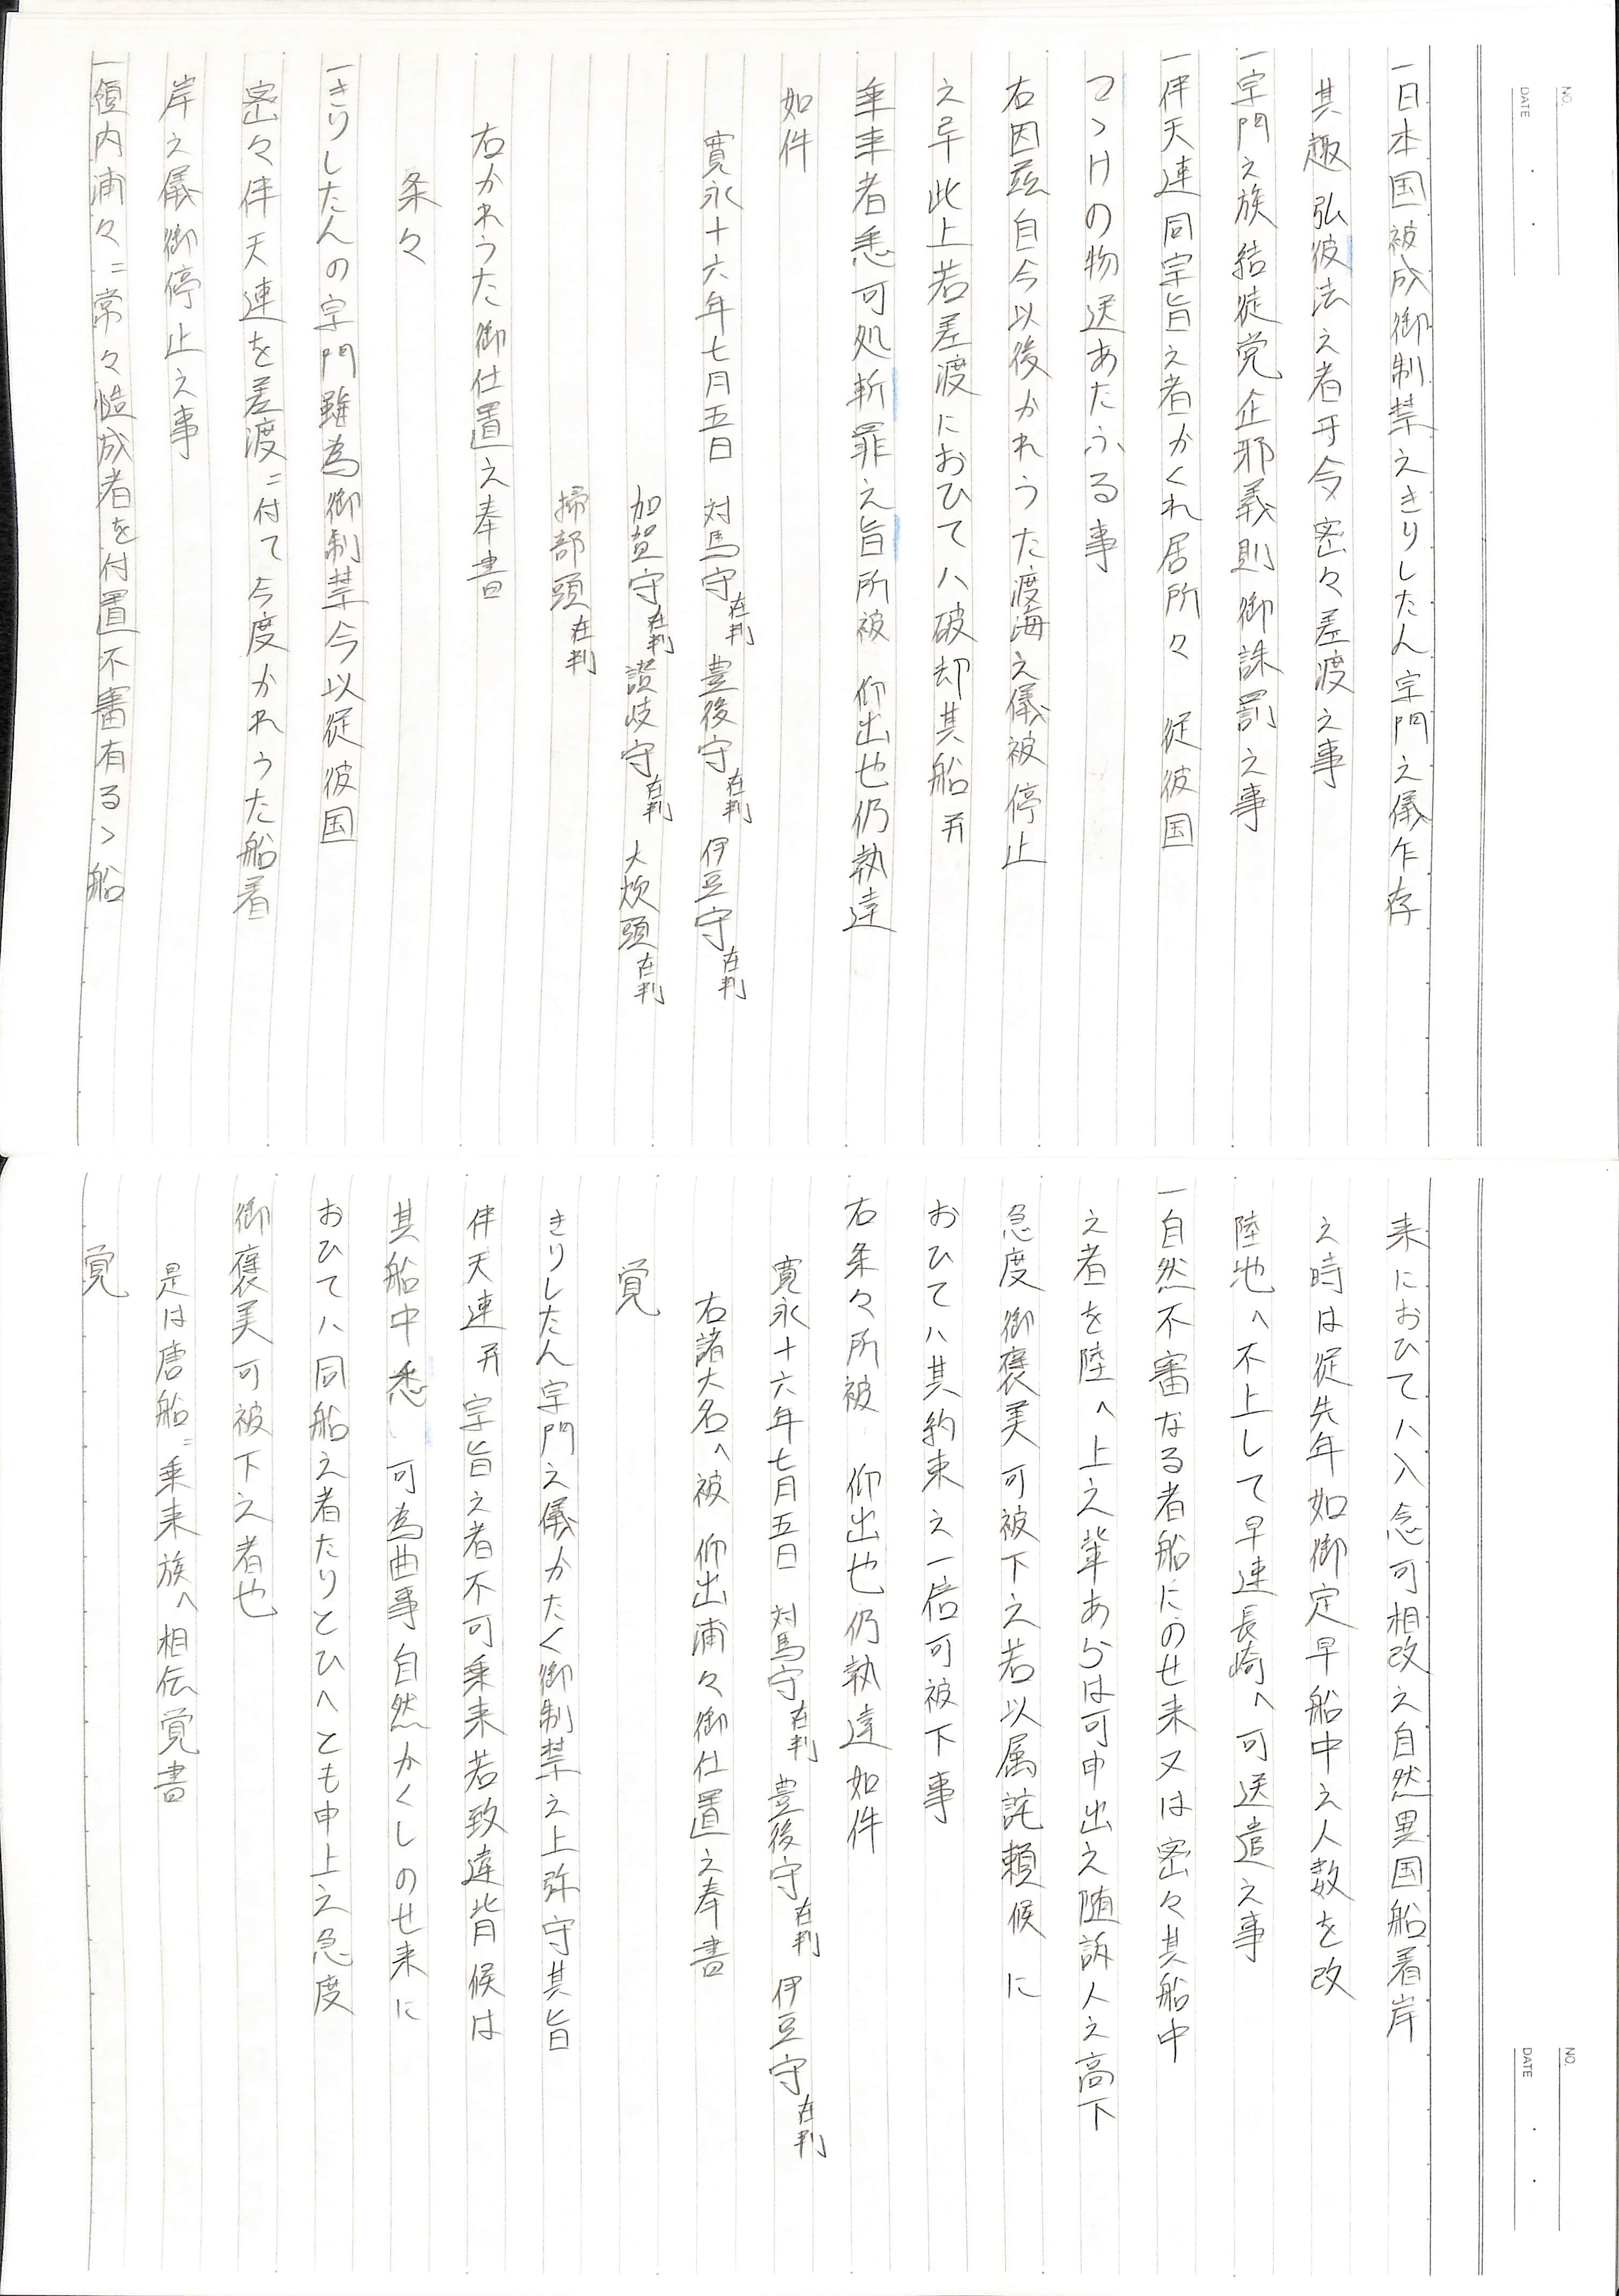 一日本国被成御制禁之きりしたん宗門之儀乍存
其趣弘彼法之者于今密々差渡之事
一宗門之族結徒党企邪義則御誅罰之事
一伴天連同宗旨之者かくれ居所々 従彼国
つゝけの物送あたふる事
右因茲自今以後かれうた渡海之儀被停止
之畢此上若差渡におひてハ破却其船并
乗来者悉可処斬罪之旨所被 仰出也仍執達
如件
寛永十六年七月五日 対馬守在判 豊後守在判 伊豆守在判
加賀守在判 讃岐守在判 大炊頭在判
掃部頭在判
右かれうた御仕置之奉書
条々
一きりしたんの宗門雖為御制禁今以従彼国
密々伴天連を差渡ニ付て今度かれうた船着
岸之儀御停止之事
一領内浦々ニ常々慥成者を付置不審有るゝ船
来におひてハ入念可相改之自然異国船着岸
之時は従先年如御定早船中之人数を改
陸地へ不上して早速長崎へ可送遣之事
一自然不審なる者船にのせ来又は密々其船中
之者を陸へ上之輩あらは可申出之随訴人之高下
急度御褒美可被下之若以属託頼候 に
おひてハ其約束之一倍可被下事
右条々所被 仰出也仍執達如件
寛永十六年七月五日 対馬守在判 豊後守在判 伊豆守在判
右諸大名へ被 仰出浦々御仕置之奉書
覚
きりしたん宗門之儀かたく御制禁之上弥守其旨
伴天連并宗旨之者不可乗来若致違背候は
其船中悉 可為曲事自然かくしのせ来に
おひてハ同船之者たりとひへとも申上之急度
御褒美可被下之者也
是は唐船ニ乗来族へ相伝覚書
覚
NO.
DATE
NO.
DATE